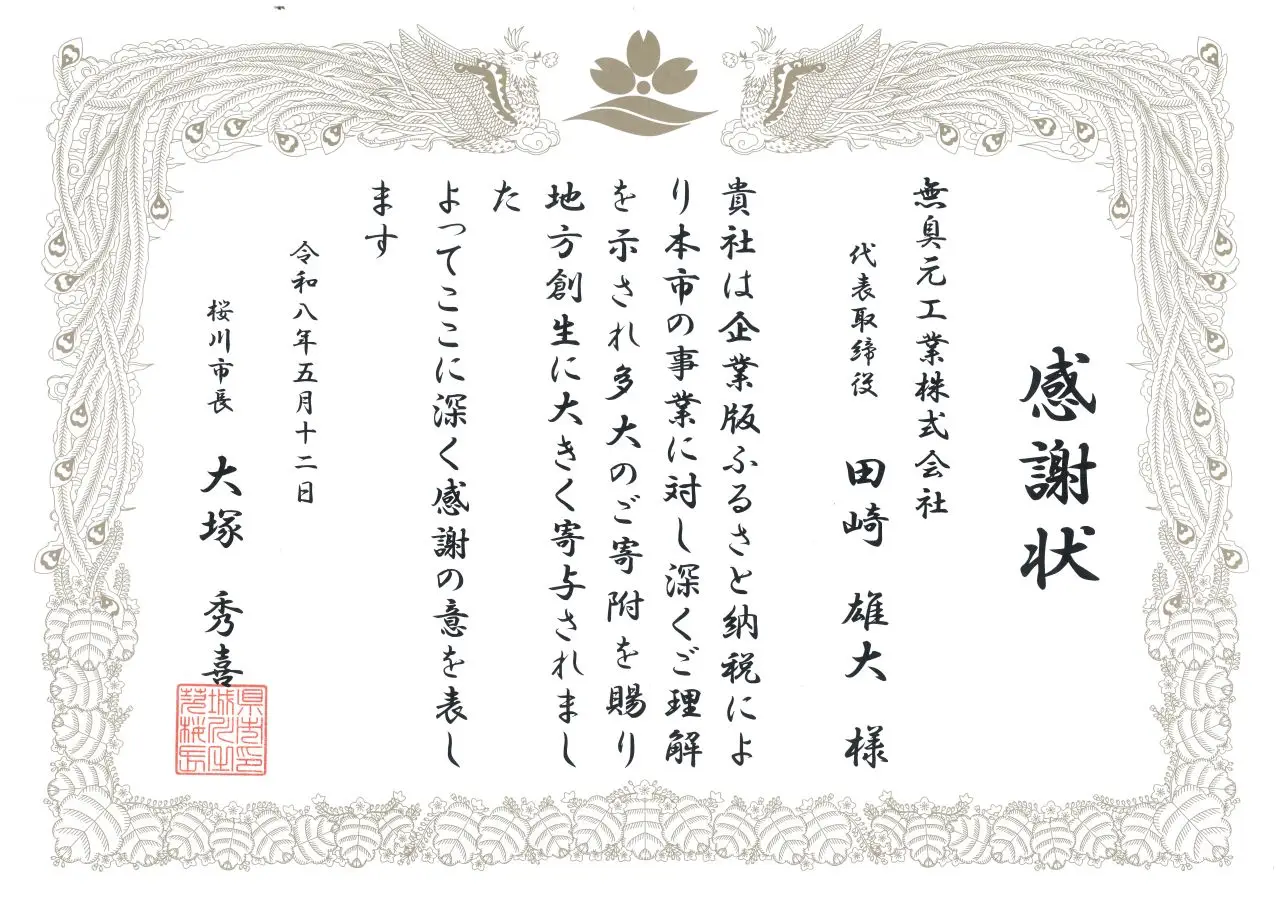 感謝状
無臭元工業株式会社
代表取締役 田崎 雄大 様
貴社は企業版ふるさと納税によ
り本市の事業に対し深くご理解
を示され多大のご寄附を賜り
地方創生に大きく寄与されまし
た
よってここに深く感謝の意を表し
ます
令和八年五月十二日
桜川市長 大塚 秀喜